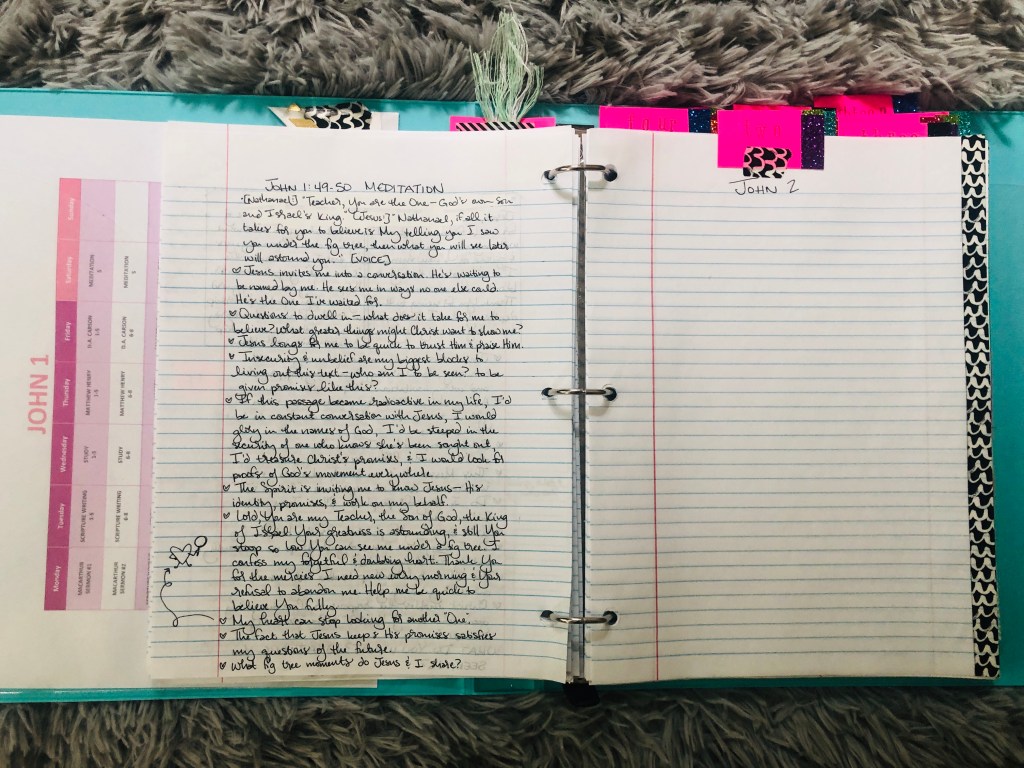 JOHN 1
Sunday
Saturday
MEDITATION
MEDITATION
Friday
D.A. CARSON
1-5
D.A. CARSON
6-8
Thursday
MATTHEW HENRY
1-5
MATTHEW HENRY
6-8
Wednesday
STUDY
1-5
STUDY
6-8
Tuesday
SCRIPTURE WRITING
1-5
SCRIPTURE WRITING
6-8
Monday
MACARTHUR
SERMON #1
MACARTHUR
SERMON #2
JOHN 1:49-50 MEDITATION
[Nathanael:] "Teacher, You are the One—God's own Son
and Israel's King." [Jesus:] "Nathanael, if all it
takes for you to believe is My telling you I saw
you under the fig tree, then what you will see later
will astound you." [VOICE]
Jesus invites me into a conversation. He's waiting to
be named by me. He sees me in ways no one else could.
He's the One I've waited for.
Questions to dwell in—what does it take for me to
believe? What greater things might Christ want to show me?
Jesus longs for me to be quick to trust Him & praise Him.
Insecurity & unbelief are my biggest blocks to
living out this text—who am I to be seen? to be
given promises like this?
If this passage became radioactive in my life, I'd
be in constant conversation with Jesus, I would
glory in the names of God, I'd be steeped in the
security of one who knows she's been sought out,
I'd treasure Christ's promises, & I would look for
proofs of God's movement everywhere.
The Spirit is inviting me to know Jesus—His
identity, promises, & work on my behalf.
Lord, You are my Teacher, the Son of God, the King
of Israel. Your greatness is astounding, & still You
stoop so low You can see me under a fig tree. I
confess my forgetful & doubting heart. Thank You
for the mercies I need new every morning & Your
refusal to abandon me. Help me be quick to
believe You fully.
My heart can stop looking for another "One".
The fact that Jesus keeps His promises satisfies
my questions of the future.
What fig tree moments do Jesus & I share?
JOHN 2